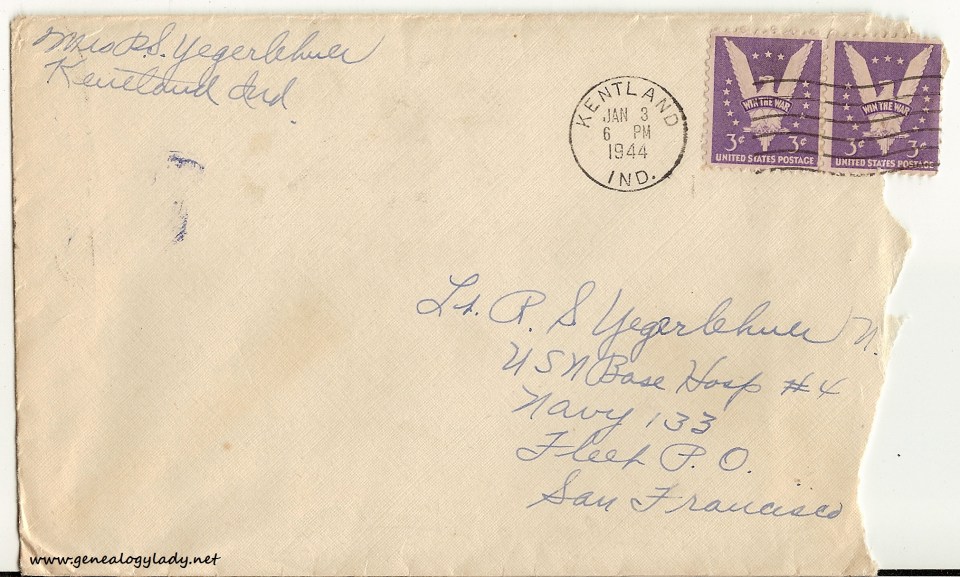 Mrs R. S. Yegerlehner
Kentland Ind
KENTLAND
JAN 3
6 PM
1944
IND.
WIN THE WAR
3¢ 3¢
UNITED STATES POSTAGE
WIN THE WAR
3¢ 3¢
UNITED STATES POSTAGE
Lt. R. S Yegerlehner
USN Base Hosp #4
Navy 133
Fleet P. O.
San Francisco
www.genealogylady.net